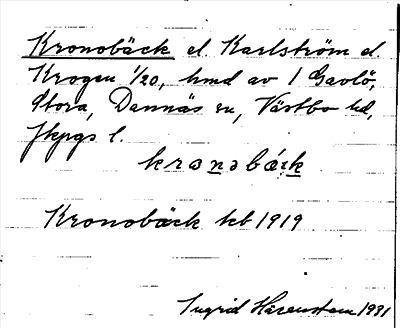 Kronobäck el. Karlström el.
Krogen 1/20, hmd av 1 Gavlö,
Stora, Dannäs sn, Västbo hd,
Jkpgs l.
Kronobäck kb 1919
Ingrid Härenstam 1931